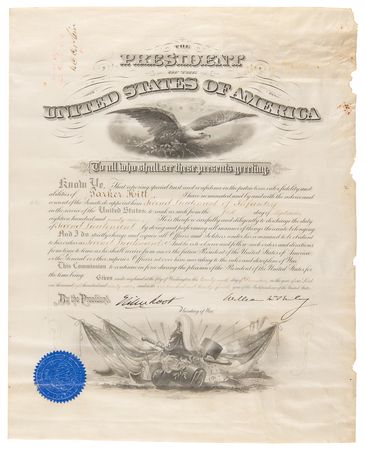 THE
PRESIDENT
OF THE
UNITED STATES OF AMERICA
To all who shall see these presents greeting:
Know Ye, That reposing special trust and confidence in the patriotism, valor, fidelity and
abilities of Parker Hitt I have nominated and by and with the advice and
consent of the Senate do appoint him Second Lieutenant of Infantry
in the service of the United States: to rank as such from the first day of
eighteen hundred and He is therefore carefully and diligently to discharge the duty
of Second Lieutenant by doing and performing all manner of things thereunto belonging.
And I do strictly charge and require all Officers and Soldiers under his command to be obedient
to his orders as Second Lieutenant And he is to observe and follow such orders and directions
from time to time as he shall receive from me or the future President of the United States of America
or the General or other superior Officers set over him according to the rules and discipline of War.
This Commission to continue in force during the pleasure of the President of the United States for
the time being.
Given under my hand at the City of Washington this day of in the year of our Lord
one thousand and in the year of the Independence of the United States.
By the President:
Elihu Root
William McKinley
Secretary of War.